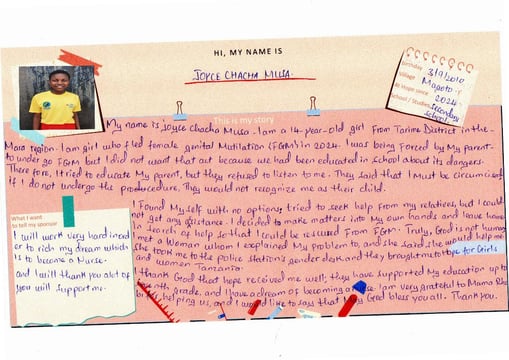 HI, MY NAME IS
JOYCE CHACHA MUSA.
Birthday 3/9/2010
Village Magoto.
At Hope since 2024.
School / Studies Secondary
school
This is my story
My name is Joyce Chacha Musa. I am a 14-year-old girl From Tarime District in the
Mara region. I am girl who fled female genital Mutilation (FGM) in 2024. I was being Forced by My parent-
to undergo FGM but I did not want that act because we had been educated in school about its dangers.
There fore, I tried to educate My parent, but they refused to listen to me. They said that I Must be circumcised
if I do not undergo the producedure, They would not recognize me as their child.
I Found Myself with no options, tried to seek help from my relatives, but I could
not get any assistance. I decided to make matters into My own hands and leave home
in search of help so that I could be rescued From FGM. Truly, God is not human
met a Woman whom I explained My problem to, and she said she would help me
She took me to the police station's gender desk and they brought me to hope for Girls
and women Tanzania.
I thank God that hope received me well; they have supported My education up to
grade, and I have a dream of becoming a nurse. I am very grateful to Mama Rho
for helping us, and I would like to say that May God bless you all. Thank you.
What I want
to tell my sponsor
I will work very hard in order
to rich my dream which
is to become a Nurse.
and I will thank you alot of
you will support me.